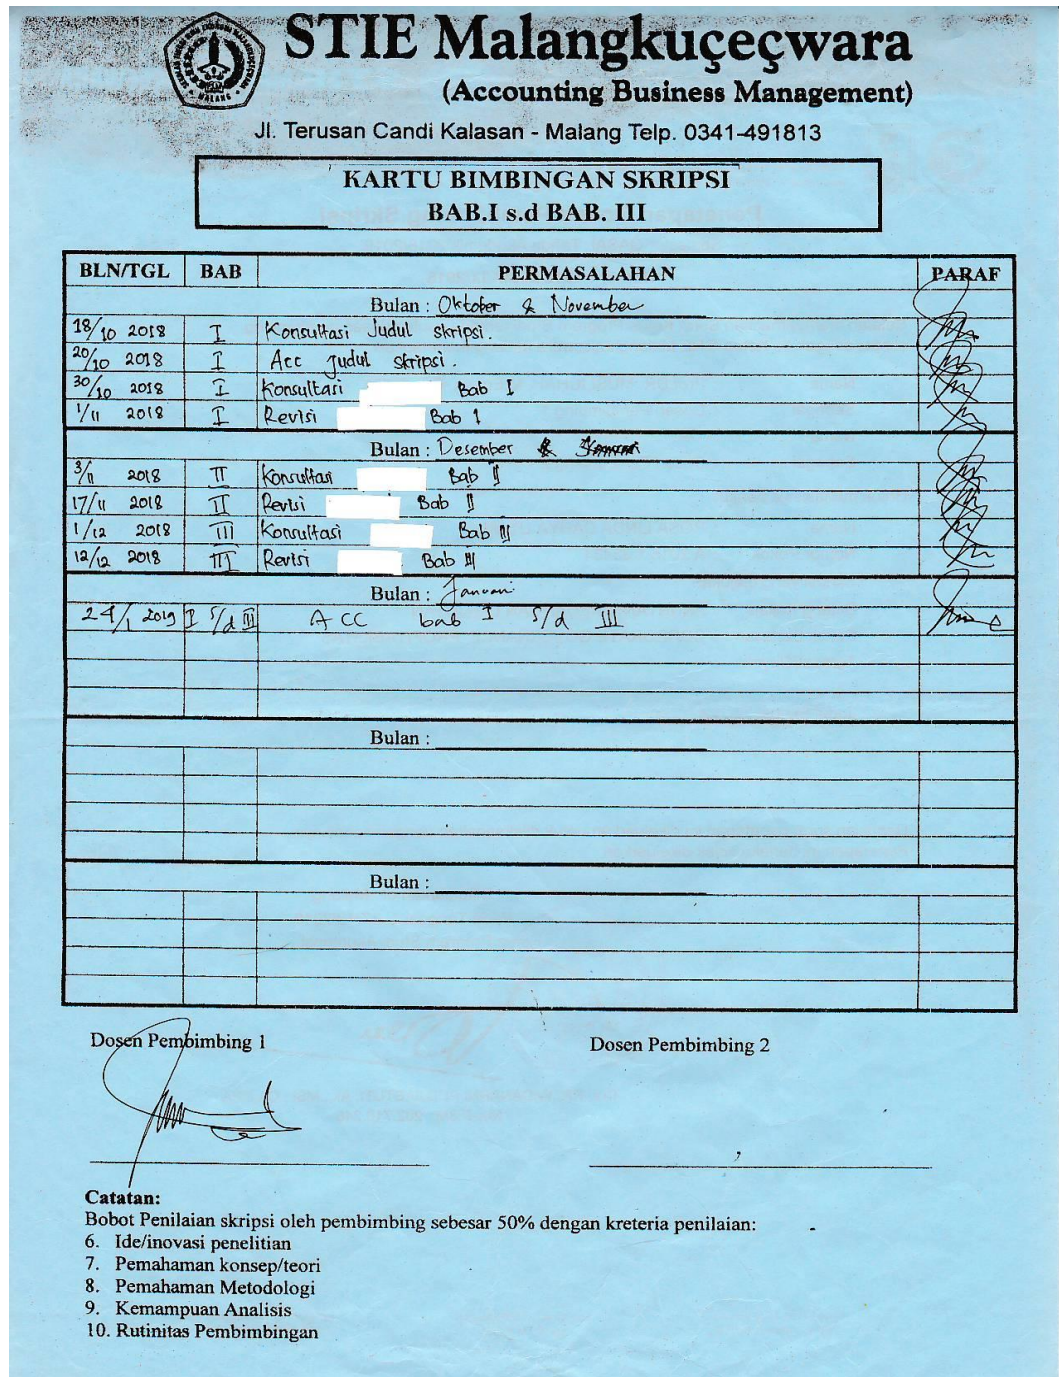 STIE Malangkuçeçwara
(Accounting Business Management)
Jl. Terusan Candi Kalasan - Malang Telp. 0341-491813
KARTU BIMBINGAN SKRIPSI
BAB.I s.d BAB. III
BLN/TGL BAB PERMASALAHAN PARAF
Bulan : Oktober & November
18/10 2018 I Konsultasi Judul skripsi.
20/10 2018 I Acc judul skripsi.
30/10 2018 I Konsultasi Bab I
1/11 2018 I Revisi Bab I
Bulan : Desember &
3/11 2018 II Konsultasi Bab II
17/11 2018 II Revisi Bab II
1/12 2018 III Konsultasi Bab III
12/12 2018 III Revisi Bab III
Bulan : Januari
24/1 2019 I s/d III ACC bab I s/d III
Bulan :
Bulan :
Dosen Pembimbing 1 Dosen Pembimbing 2
Catatan:
Bobot Penilaian skripsi oleh pembimbing sebesar 50% dengan kreteria penilaian:
6. Ide/inovasi penelitian
7. Pemahaman konsep/teori
8. Pemahaman Metodologi
9. Kemampuan Analisis
10. Rutinitas Pembimbingan